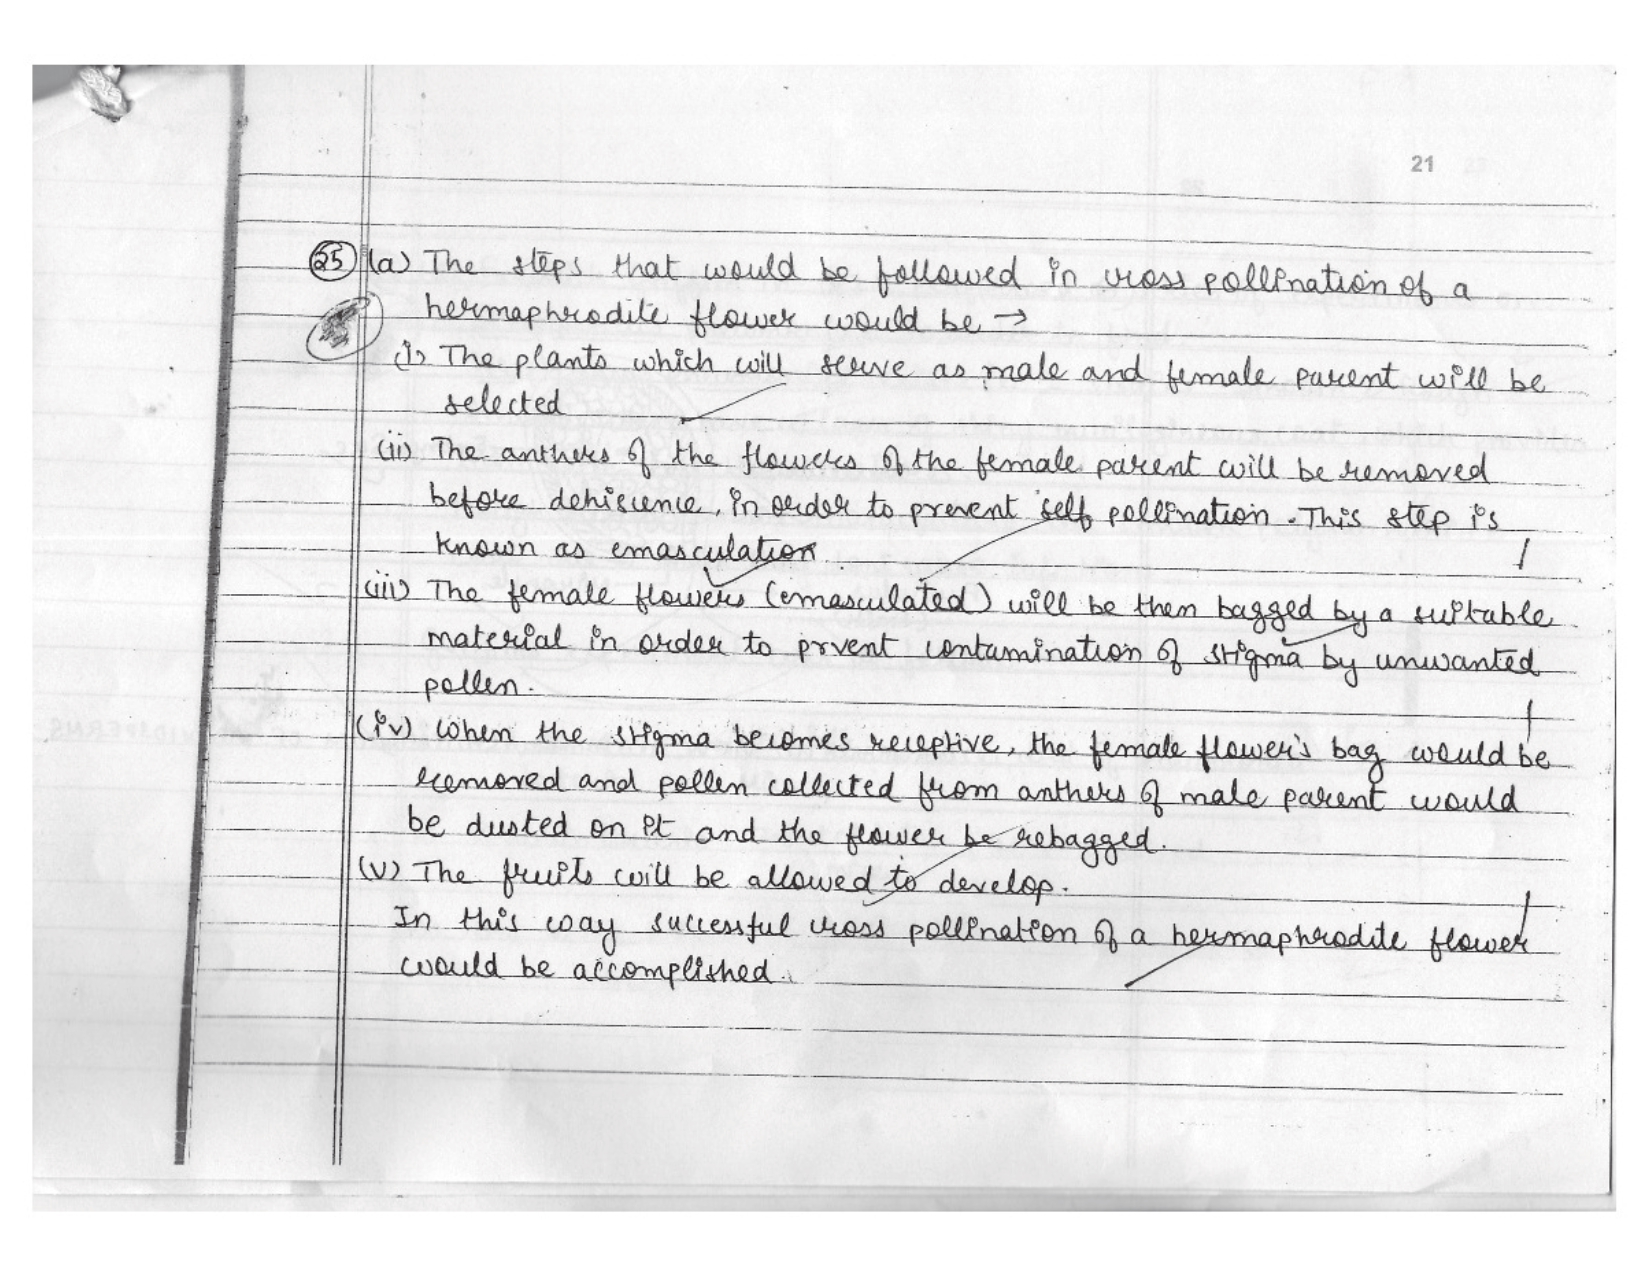 21
25 (a) The steps that would be followed in cross pollination of a
hermaphrodite flower would be →
(i) The plants which will serve as male and female parent will be
selected
(ii) The anthers of the flowers of the female parent will be removed
before dehiscence, in order to prevent self pollination. This step is
known as emasculation
(iii) The female flowers (emasculated) will be then bagged by a suitable
material in order to prvent contamination of stigma by unwanted
pollen.
(iv) When the stigma becomes receptive, the female flower's bag would be
removed and pollen collected from anthers of male parent would
be dusted on it and the flower be rebagged.
(v) The fruits will be allowed to develop.
In this way successful cross pollination of a hermaphrodite flower
would be accomplished.